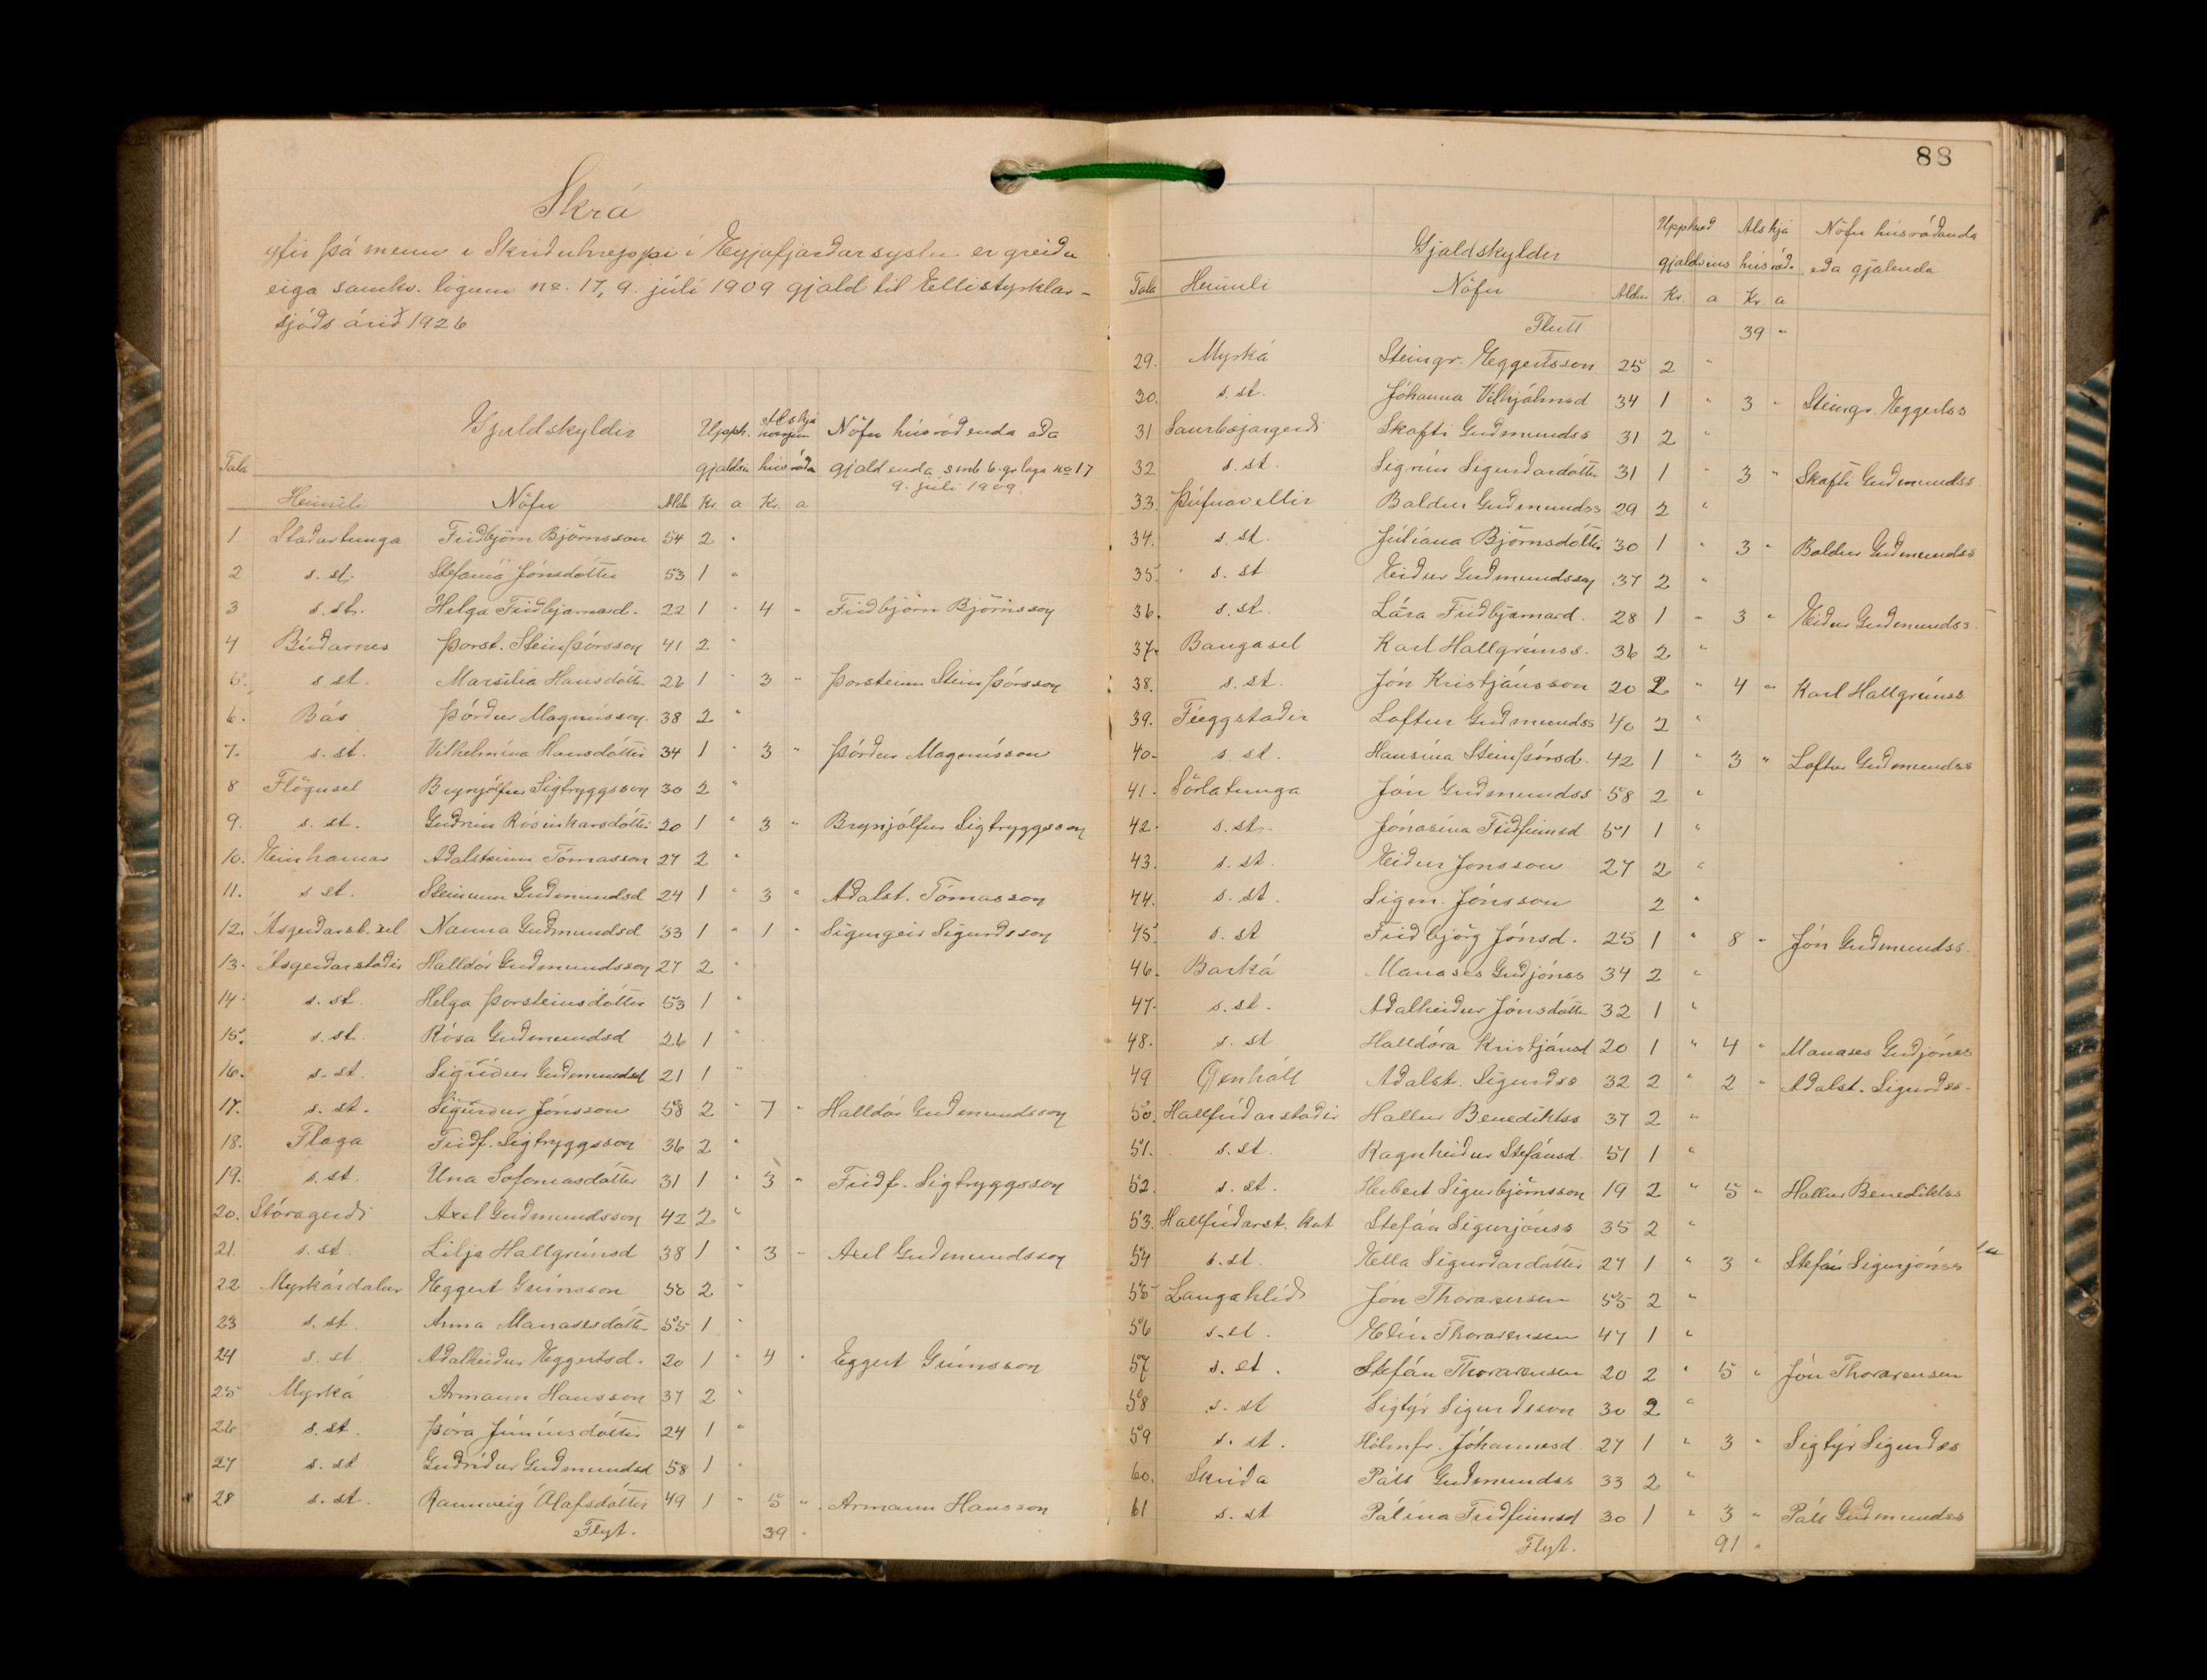 Skrá
yfir þá menn í Skriðuhreppi í Eyjafjarðarsýslu er greiða
eiga samkv. lögum no. 17, 9. júlí 1909 gjald til Ellistyrktar-
sjóðs árið 1926
Gjaldskyldir Upph. Als hjá Nöfn húsráðenda eða
Tala gjaldsin húsráða gjaldenda smb 6. gr laga no 17
9. júlí 1909.
Heimili Nöfn Aldr Kr. a Kr. a
1. Staðartunga Friðbjörn Björnsson 54 2 "
2 s. st. Stefanía Jónsdóttir 53 1 "
3 s. st. Helga Friðbjarnard. 22 1 " 4 " Friðbjörn Björnsson
4 Búðarnes Þorst. Steinþórsson 41 2 "
5. s. st. Marsilía Hansdótt. 26 1 " 3 " Þorsteinn Steinþórsson
6. Bás Þórður Magnússon. 38 2 "
7. s. st. Vilhelmína Hansdóttir 34 1 " 3 " Þórður Magnússon
8 Flögusel Brynjólfur Sigtryggsson 30 2 "
9. s. st. Guðrún Rósinkarsdóttir 20 1 " 3 " Brynjólfur Sigtryggsson
10. Einhamar Aðalsteinn Tómasson 27 2 "
11. s. st. Steinunn Guðmundsd 24 1 " 3 " Aðalst. Tómasson
12. Ásgerðarst. sel Nanna Guðmundsd 33 1 " 1 " Sigurgeir Sigurðsson
13. Ásgerðarstaðir Halldór Guðmundsson 27 2 "
14. s. st. Helga Þorsteinsdóttir 53 1 "
15. s. st. Rósa Guðmundsd 26 1 "
16. s. st. Sigríður Guðmundsd 21 1 "
17. s. st. Sigurður Jónsson 58 2 " 7 " Halldór Guðmundsson
18. Flaga Friðf. Sigtryggsson 36 2 "
19. s. st. Una Sofoníasdóttir 31 1 " 3 " Friðf. Sigtryggsson
20. Stóragerði Axel Guðmundsson 42 2 "
21. s. st. Lilja Hallgrímsd 38 1 " 3 " Axel Guðmundsson
22 Myrkárdalur Eggert Grímsson 50 2 "
23 s. st. Anna Manasesdóttir 55 1 "
24 s. st. Aðalheiður Eggertsd. 20 1 " 4 " Eggert Grímsson
25 Myrká Ármann Hansson 37 2 "
26 s. st. Þóra Júníusdóttir 24 1 "
27 s. st Guðríður Guðmundsd 58 1 "
28 s. st. Rannveig Ólafsdóttir 49 1 " 5 " Ármann Hansson
Flyt. 39 "
88
Gjaldskyldir Upphæð Als hjá Nöfn húsráðanda
gjaldsins húsráð. eða gjalenda
Tala Heimili Nöfn Aldur Kr. a Kr. a
Flutt 39 "
29. Myrká Steingr. Eggertsson 25 2 "
30. s. st. Jóhanna Vilhjálmsd 34 1 " 3 " Steingr. Eggertss
31 Saurbæjargerði Skafti Guðmundss 31 2 "
32 s. st. Sigrún Sigurðardóttir 31 1 " 3 " Skafti Guðmundss.
33. Þúfnavellir Baldur Guðmundss 29 2 "
34. s. st. Júlíana Björnsdóttir 30 1 " 3 " Baldur Guðmundss
35. s. st Eiður Guðmundsson 37 2 "
36. s. st. Lára Friðbjarnard. 28 1 " 3 " Eiður Guðmundss.
37. Baugasel Karl Hallgrímss. 36 2 "
38. s. st. Jón Kristjánsson 20 2 " 4 " Karl Hallgrímss
39. Féeggstaðir Loftur Guðmundss 40 2 "
40. s. st. Hansína Steinþórsd. 42 1 " 3 " Loftur Guðmundss
41. Sörlatunga Jón Guðmundss 58 2 "
42. s. st. Jónasína Friðfinnsd 51 1 "
43. s. st. Eiður Jónsson 27 2 "
44. s. st. Sigm. Jónsson 2 "
45. s. st Friðbjörg Jónsd. 25 1 " 8 " Jón Guðmundss.
46. Barká Manases Guðjónss 34 2 "
47. s. st. Aðalheiður Jónsdóttir 32 1 "
48. s. st Halldóra Kristjánsd 20 1 " 4 " Manases Guðjónss
49 Gjenháll Aðalst. Sigurðss 32 2 " 2 " Aðalst. Sigurðss.
50. Hallfríðarstaðir Hallur Benediktss 37 2 "
51. s. st. Ragnheiður Stefánsd. 51 1 "
52. s. st. Herbert Sigurbjörnsson 19 2 " 5 " Hallur Benediktss
53. Hallfríðarst. kot Stefán Sigurjónss 35 2 "
54 s. st. Ella Sigurðardóttir 27 1 " 3 " Stefán Sigurjónss
55 Langahlíð Jón Thorarensen 55 2 "
56 s. st. Elín Thorarensen 47 1 "
57 s. st. Stefán Thorarensen 20 2 " 5 " Jón Thorarensen
58 s. st Sigtýr Sigurðsson 30 2 "
59 s. st. Hólmfr. Jóhannesd. 27 1 " 3 " Sigtýr Sigurðss
60. Skriða Páll Guðmundss 33 2 "
61 s. st Pálína Friðfinnsd 30 1 " 3 " Páll Guðmundss
Flyt. 91 "